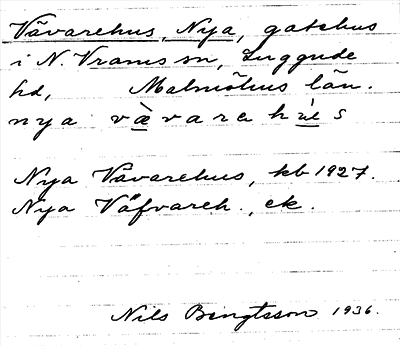 Vävarehus, Nya, gatehus
i N. Vrams sn, Luggude
hd, Malmöhus län.
nya vævarahùs
Nya Vävarehus, kb 1927.
Nya Väfvareh., ek.
Nils Bengtsson 1936.